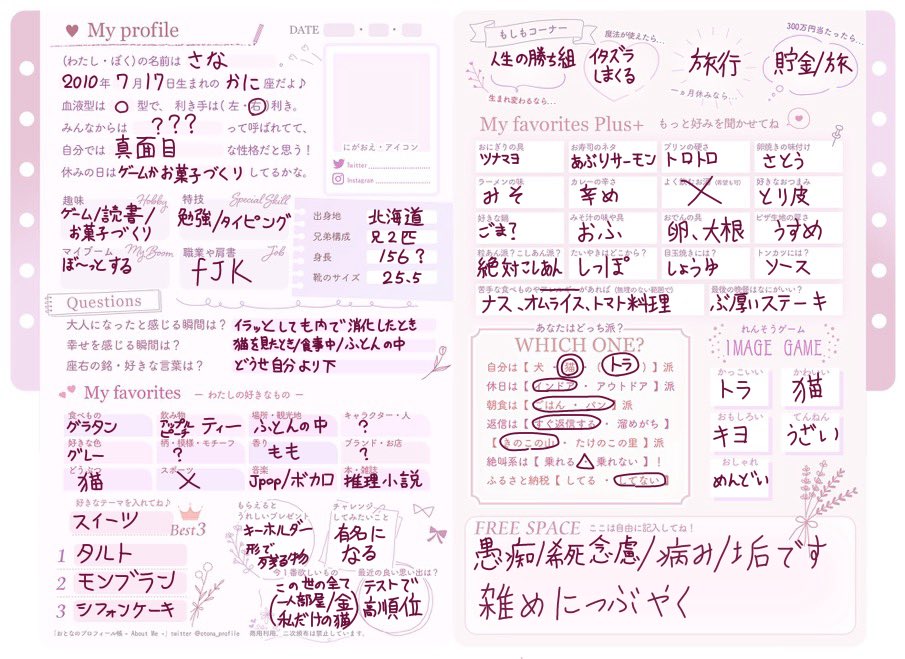 My profile
DATE
(わたし・ぼく)の名前は さな 。
2010年 7月17日生まれの かに 座だよ♪
血液型は O 型で、利き手は(左・右)利き。
みんなからは ??? って呼ばれてて、
自分では 真面目 な性格だと思う!
休みの日は ゲームかお菓子づくり してるかな。
にがおえ・アイコン
Twitter
Instagram
趣味 Hobby
ゲーム/読書/
お菓子づくり
特技 Special Skill
勉強/タイピング
マイブーム My Boom
ぼーっとする
職業や肩書 Job
fJK
出身地 北海道
兄弟構成 兄2匹
身長 156?
靴のサイズ 25.5
Questions
大人になったと感じる瞬間は? イラッとしても内で消化したとき
幸せを感じる瞬間は? 猫を見たとき/食事中/ふとんの中
座右の銘・好きな言葉は? どうせ自分より下
My favorites ー わたしの好きなもの ー
食べもの
グラタン
飲み物
アップルピーチ ティー
場所・観光地
ふとんの中
キャラクター・人
?
好きな色
グレー
柄・模様・モチーフ
?
香り
もも
ブランド・お店
?
どうぶつ
猫
スポーツ
×
音楽
Jpop/ボカロ
本・雑誌
推理小説
好きなテーマを入れてね♪
スイーツ
Best3
1 タルト
2 モンブラン
3 シフォンケーキ
もらえると
うれしいプレゼント
キーホルダー
形で
残る物
チャレンジ
してみたいこと
有名に
なる
今1番欲しいもの
この世の全て
(一人部屋/金)
私だけの猫
最近の良い思い出は?
テストで
高順位
「おとなのプロフィール帳 - About Me -」twitter @otona_profile 商用利用、二次頒布は禁止しています。
もしもコーナー
人生の勝ち組
生まれ変わるなら…
魔法が使えたら…
イタズラ
しまくる
旅行
一ヵ月休みなら…
300万円当たったら…
貯金/旅
My favorites Plus+ もっと好みを聞かせてね
おにぎりの具
ツナマヨ
お寿司のネタ
あぶりサーモン
プリンの硬さ
トロトロ
卵焼きの味付け
さとう
ラーメンの味
みそ
カレーの辛さ
辛め
よく飲むお酒
×
好きなおつまみ
とり皮
好きな鍋
ごま?
みそ汁の味や具
おふ
おでんの具
卵、大根
ピザ生地の厚さ
うすめ
粒あん派?こしあん派?
絶対こしあん
たいやきはどこから?
しっぽ
目玉焼きには?
しょうゆ
トンカツには?
ソース
苦手な食べものやアレルギーがあれば (無理のない範囲で)
ナス、オムライス、トマト料理
最後の晩餐はなにがいい?
ぶ厚いステーキ
あなたはどっち派?
WHICH ONE?
自分は【 犬 ・ 猫 ・ ( トラ ) 】派
休日は【 インドア ・ アウトドア 】派
朝食は【 ごはん ・ パン 】派
返信は【 すぐ返信する ・ 溜めがち 】
【 きのこの山 ・ たけのこの里 】派
絶叫系は【 乗れる △ 乗れない 】!
ふるさと納税【 してる ・ してない 】
れんそうゲーム
IMAGE GAME
かっこいい
トラ
かわいい
猫
おもしろい
キヨ
てんねん
うざい
おしゃれ
めんどい
FREE SPACE ここは自由に記入してね!
愚痴/希死念慮/病み/垢です
雑めにつぶやく